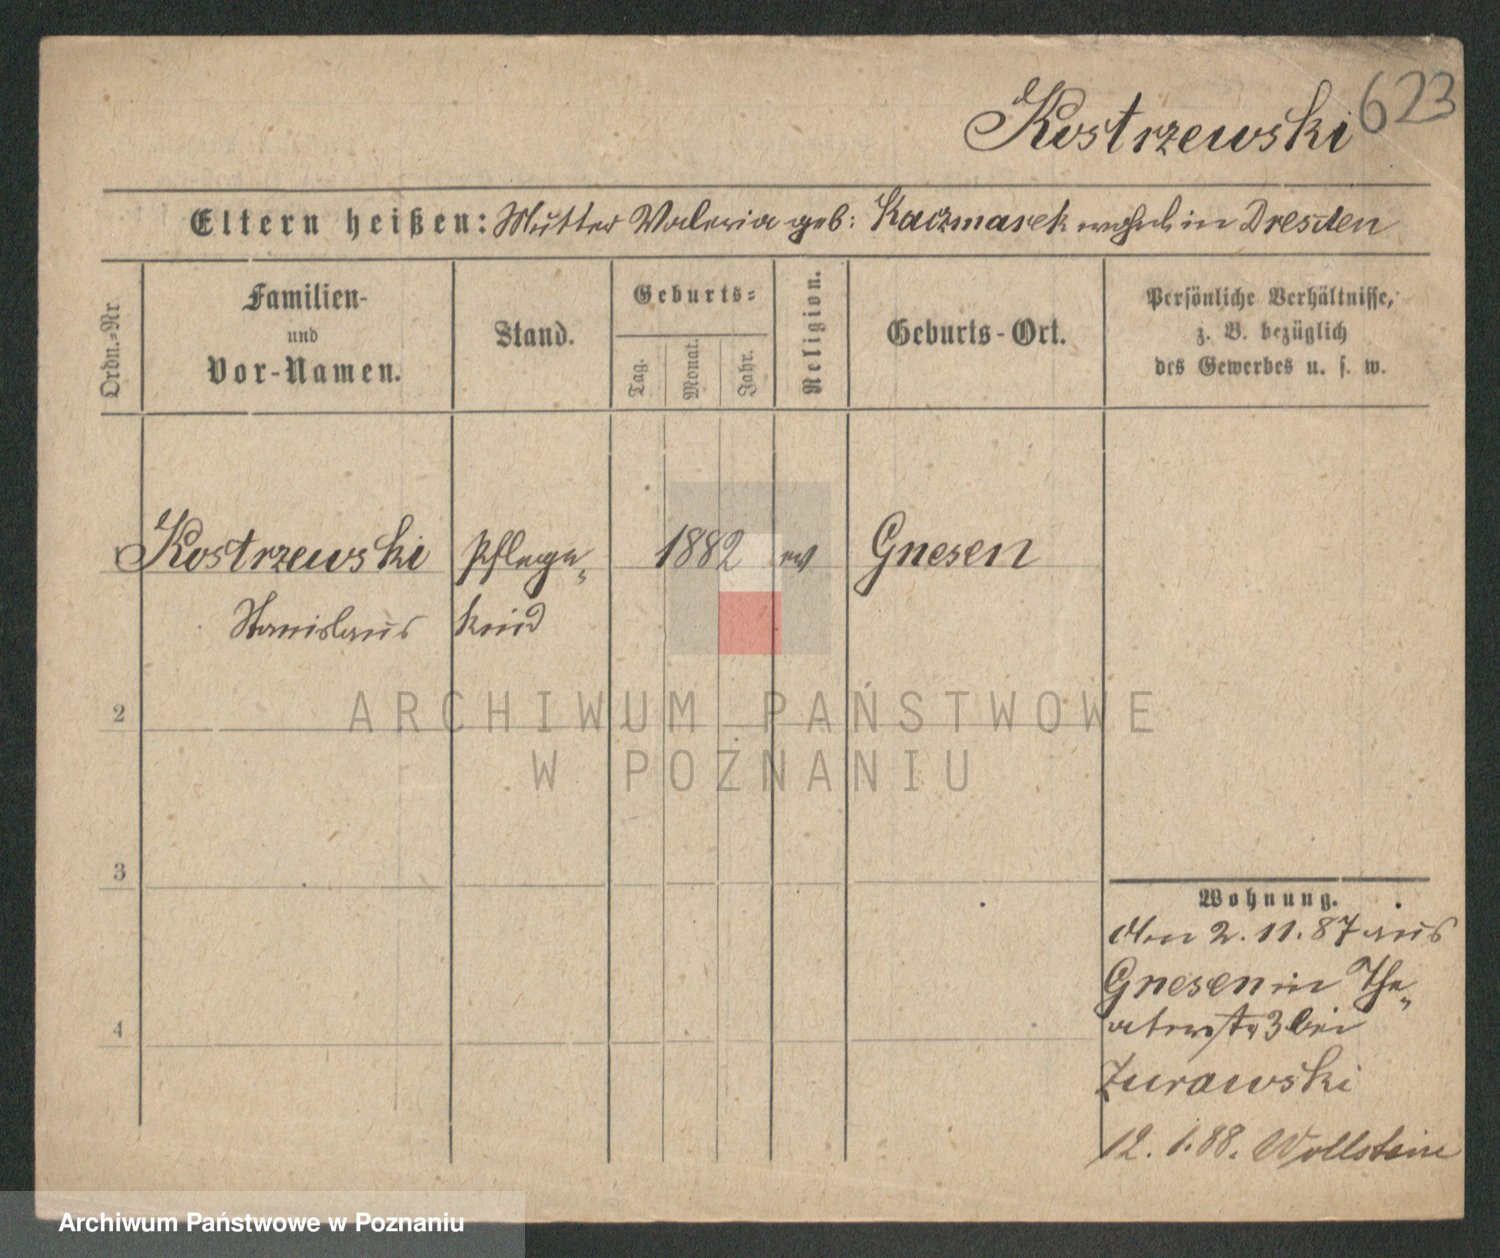 Kostrzewski 623
Eltern heißen: Mutter Valeria geb: Kaczmarek wohnh in Dresden
Ordn.-Nr
Familien-
und
Vor-Namen.
Stand.
Geburts-
Tag.
Monat.
Jahr.
Religion.
Geburts-Ort.
Persönliche Verhältnisse,
z. B. bezüglich
des Gewerbes u. s. w.
Kostrzewski Pflege- 1882 Gnesen
Stanislaus kind
2
3
4
Wohnung.
den 2.11.87 aus
Gnesen in The-
aterstr 3 bei
Zurawski
12.1.88. Wollstein
ARCHIWUM PAŃSTWOWE
W POZNANIU
Archiwum Państwowe w Poznaniu